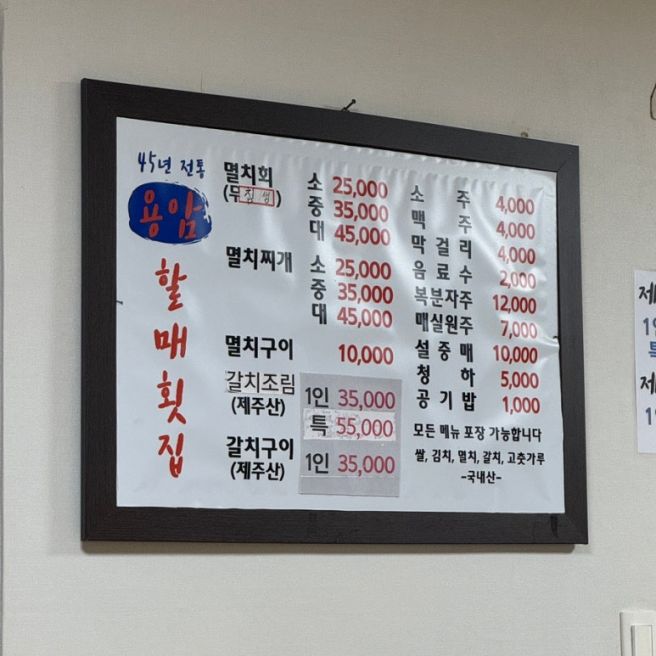 45년 전통
용암
할매횟집
멸치회
(무침, 생)
소 25,000
중 35,000
대 45,000
멸치찌개
소 25,000
중 35,000
대 45,000
멸치구이 10,000
갈치조림
(제주산)
1인 35,000
특 55,000
갈치구이
(제주산)
1인 35,000
소 주 4,000
맥 주 4,000
막 걸 리 4,000
음 료 수 2,000
복분자주 12,000
매실원주 7,000
설 중 매 10,000
청 하 5,000
공 기 밥 1,000
모든 메뉴 포장 가능합니다
쌀, 김치, 멸치, 갈치, 고춧가루
-국내산-